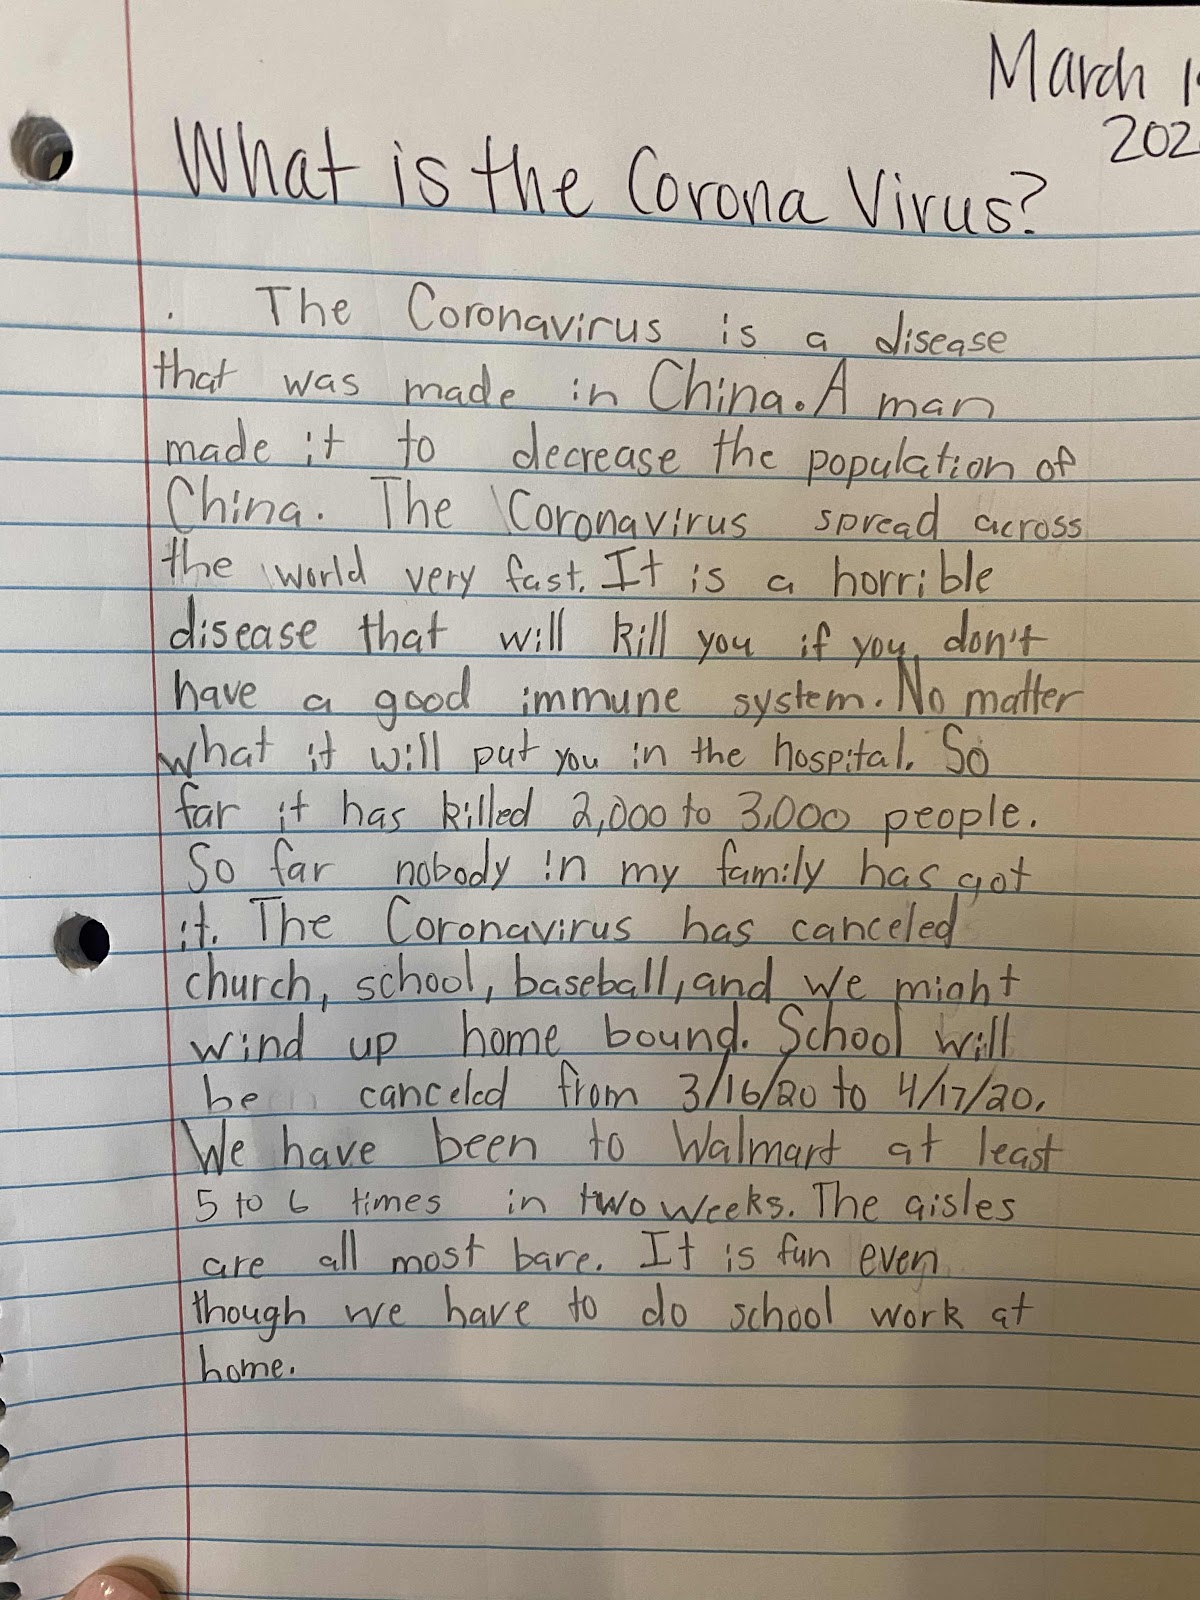 March 1
202
What is the Corona Virus?
The Coronavirus is a disease
that was made in China. A man
made it to decrease the population of
China. The Coronavirus spread across
the world very fast. It is a horrible
disease that will kill you if you don't
have a good immune system. No matter
what it will put you in the hospital. So
far it has killed 2,000 to 3,000 people.
So far nobody in my family has got
it. The Coronavirus has canceled
church, school, baseball, and we might
wind up home bound. School will
be canceled from 3/16/20 to 4/17/20.
We have been to Walmart at least
5 to 6 times in two weeks. The aisles
are all most bare. It is fun even
though we have to do school work at
home.